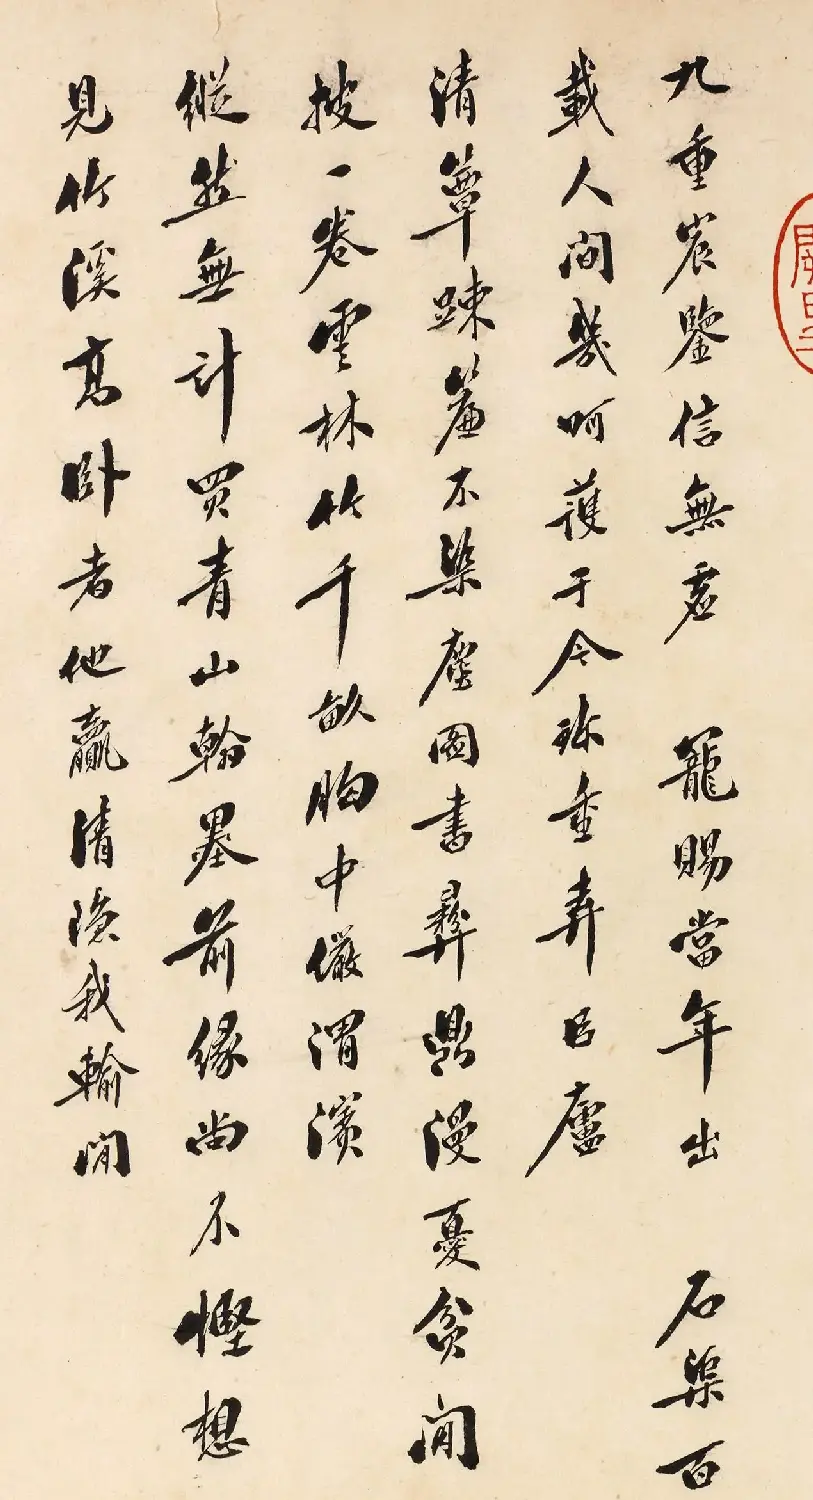 九重宸鑒信無虛 籠賜當年出 石渠百
載人間幾呵護于今珍重弆臣廬
清簟疎簾不染塵圖書彝鼎漫憂貧閒
披一卷雲林竹千畝胸中儼渭濱
縱然無計買青山翰墨前緣尚不慳想
見竹溪高卧者他贏清隱我輸閒